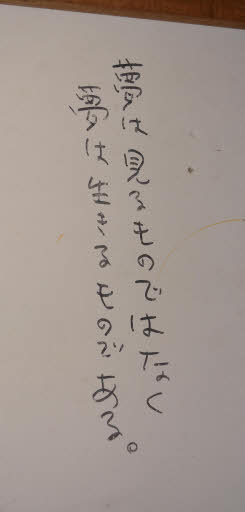 は見るものではなく
はるものである。